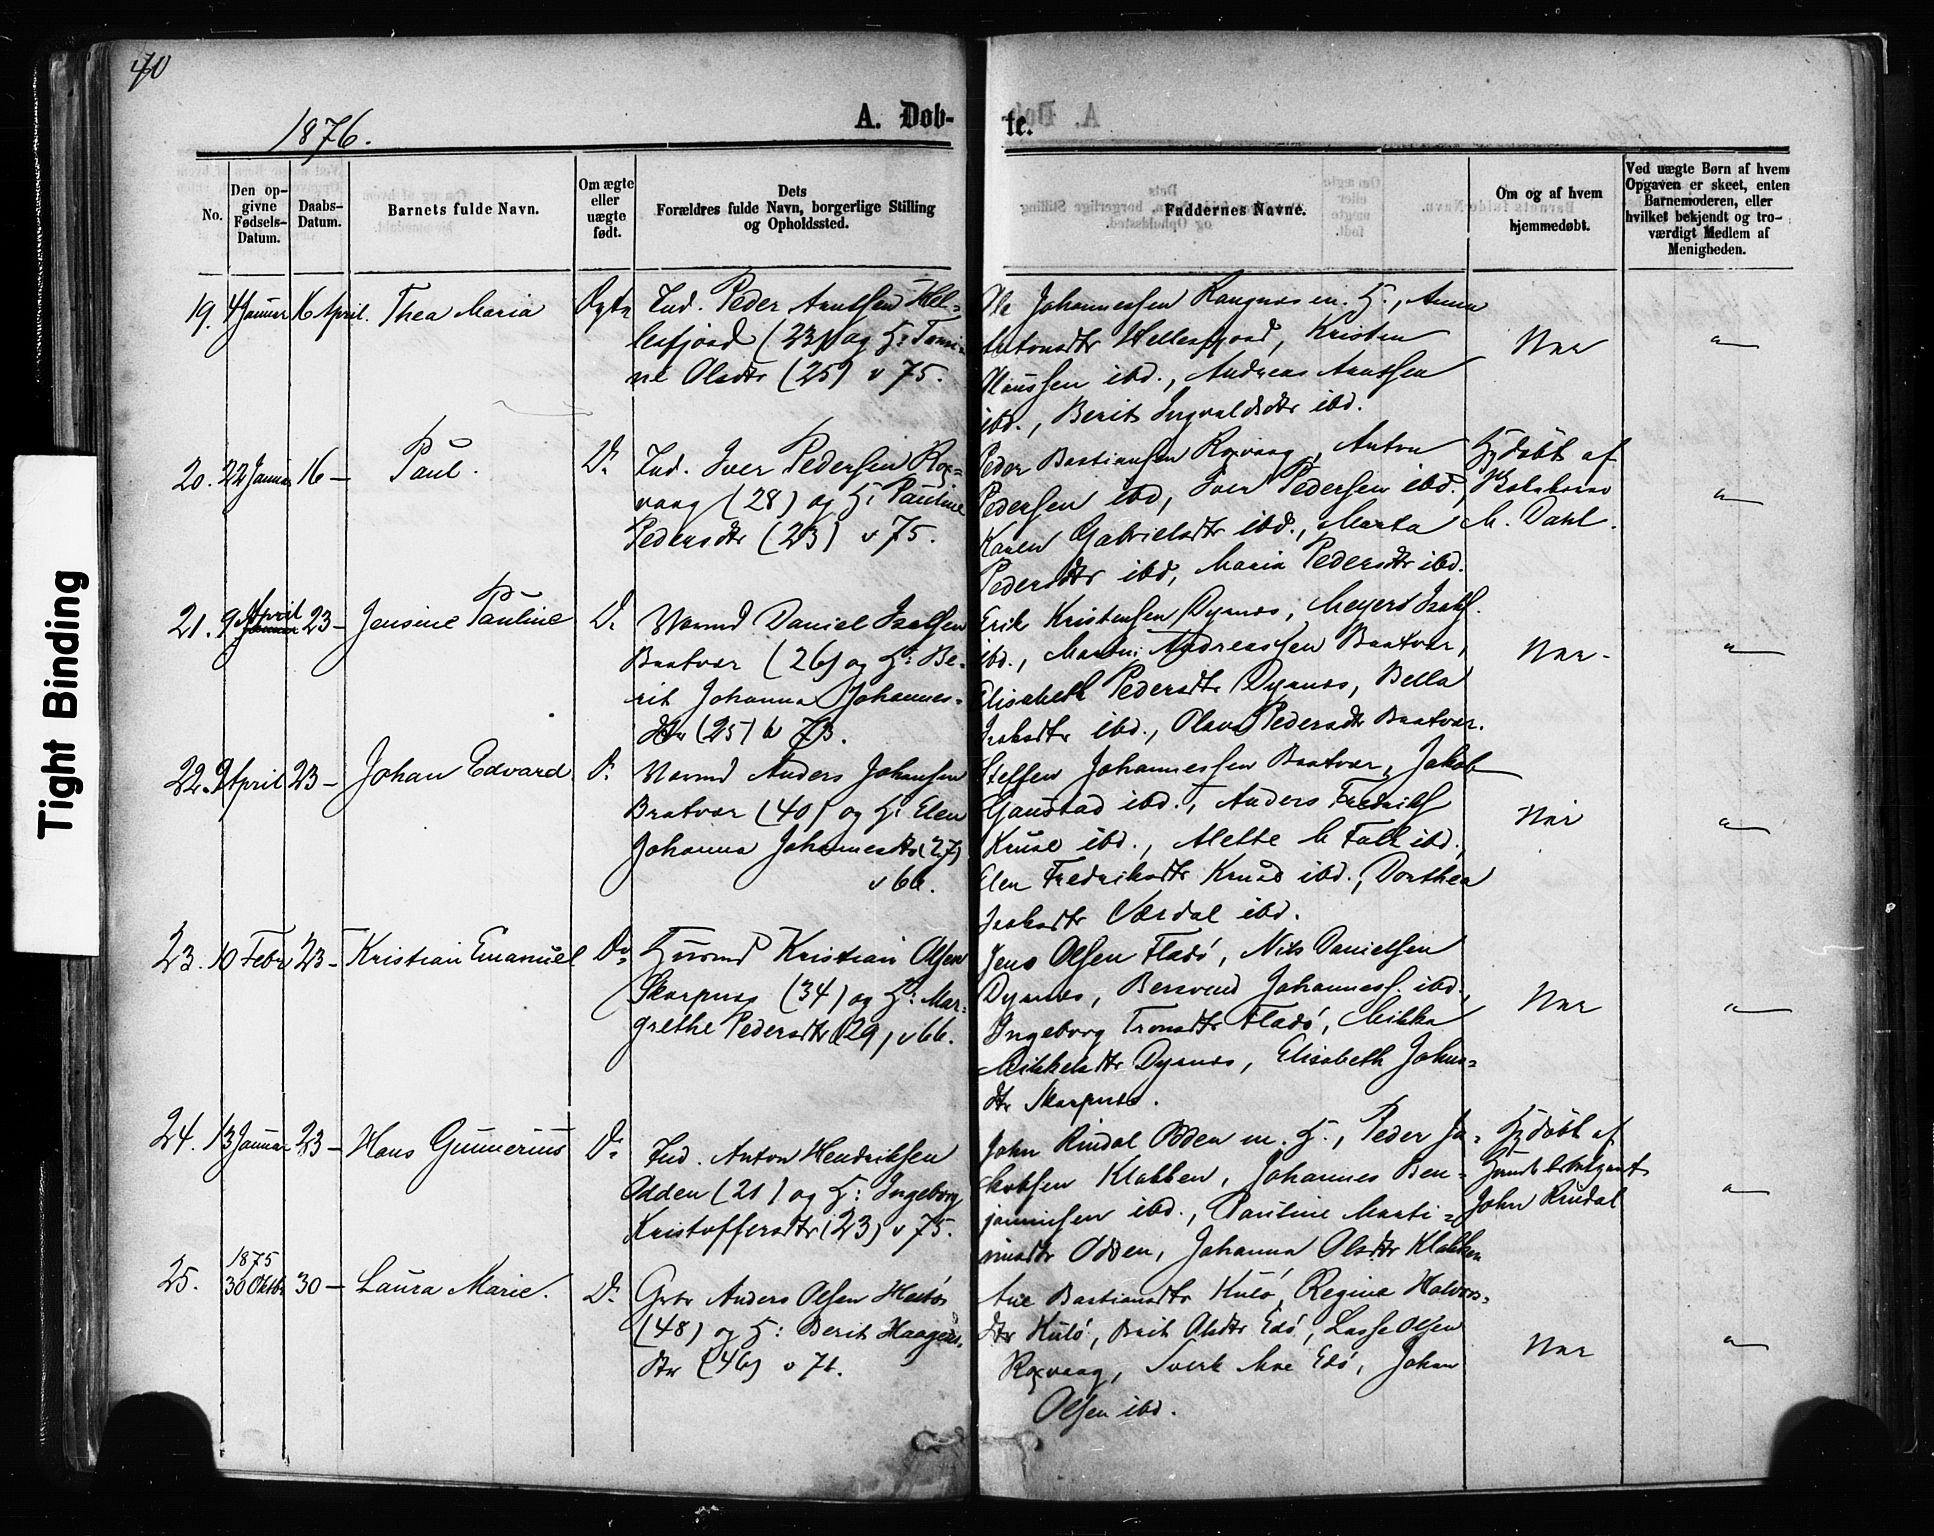 40
1876.
A. Døb-
te.
No.
Den op-
givne
Fødsels-
Datum.
Daabs-
Datum.
Barnets fulde Navn.
Om ægte
eller
uægte
født.
Dets
Forældres fulde Navn, borgerlige Stilling
og Opholdssted.
Faddernes Navne.
Om og af hvem
hjemmedøbt.
Ved uægte Børn af hvem
Opgaven er skeet, enten
Barnemoderen, eller
hvilket bekjendt og tro-
værdigt Medlem af
Menigheden.
19. 4 Januar 16 April. Thea Maria Ægte
Ind. Peder Arntsen Hel-
lesfjord (23) og H:
ne Olsdtr (25) v 75.
Ole Johannessen Rangnes m. H., Anna
Antonsdtr Hellesfjord, Kristen
Olaussen ibd., Andreas Arntsen
ibd., Berit Ingvaldsdtr ibd.
Nei
"
20. 22 Januar 16 – Paul. Do
Ind. Iver Pedersen Rox-
vaag (28) og H: Pauline
Pedersdtr (23) v 75.
Peder Bastiansen Roxvaag, Anton
Pedersen ibd, Iver Pedersen ibd.,
Karen Gabrielsdtr ibd., Marta
Pedersdtr ibd, Maria Pedersdtr ibd.
Hjdøbt af
M. Dahl.
"
21. 9 April 23 – Jensine Pauline Do
Daniel Isaksen
Bratvær (26) og H: Be-
rit Johanna Johannes-
dtr (25) v 73.
Erik Kristensen Dyrnes, Meyer Isaks.
ibd., Martin Andreassen Bratvær,
Elisabeth Pedersdtr Dyrnes, Bella
Isaksdtr ibd., Olava Pedersdtr Bratvær.
Nei
"
22. 2 April 23 – Johan Edvard Do
Anders Johansen
Bratvær (40) og H: Elen
Johanna Johannesdtr (27)
v 66.
Steffen Johannessen Bratvær, Jakob
Gaustad ibd., Anders Fredriks.
Kruse ibd., Mette M Falk ibd.,
Elen Fredriksdtr Kruse ibd., Dorthea
Isaksdtr Værdal ibd.
Nei
"
23. 10 Febr 23 – Kristian Emanuel Do
Husmd Kristian Olsen
Skarpnes (34) og H: Mar-
grethe Pedersdtr (29) v 66.
Jens Olsen Fladø, Nils Danielsen
Dyrnes, Bersvend Johanness. ibd.,
Ingeborg Tronsdtr Fladø, Mikka
Mikkelsdtr Dyrnes, Elisabeth Johns-
dtr Skarpnes.
Nei
"
24. 13 Januar 23 – Hans Gunnerius Do
Ind. Anton Hendriksen
Odden (21) og H: Ingeborg
Kristoffersdtr (23) v 75.
John Rindal Odden m. H., Peder Ja-
kobsen Klakken, Johannes Ben-
jaminsen ibd., Pauline Marti-
nusdtr Odden, Johanna Olsdtr Klakken
Hjdøbt af
John Rindal
"
25. 1875
30 Oktbr 30 – Laura Marie. Do
Gbr Anders Olsen
(48) og H: Berit Haagens-
dtr (46) v 71.
Ane Bastiansdtr Kulø, Regine Halvors-
dtr Kulø, Berit Olsdtr Edø, Lasse Olsen
Roxvaag, Sverk Moe Edø, Johan
Olsen ibd.
Nei
"
Tight Binding